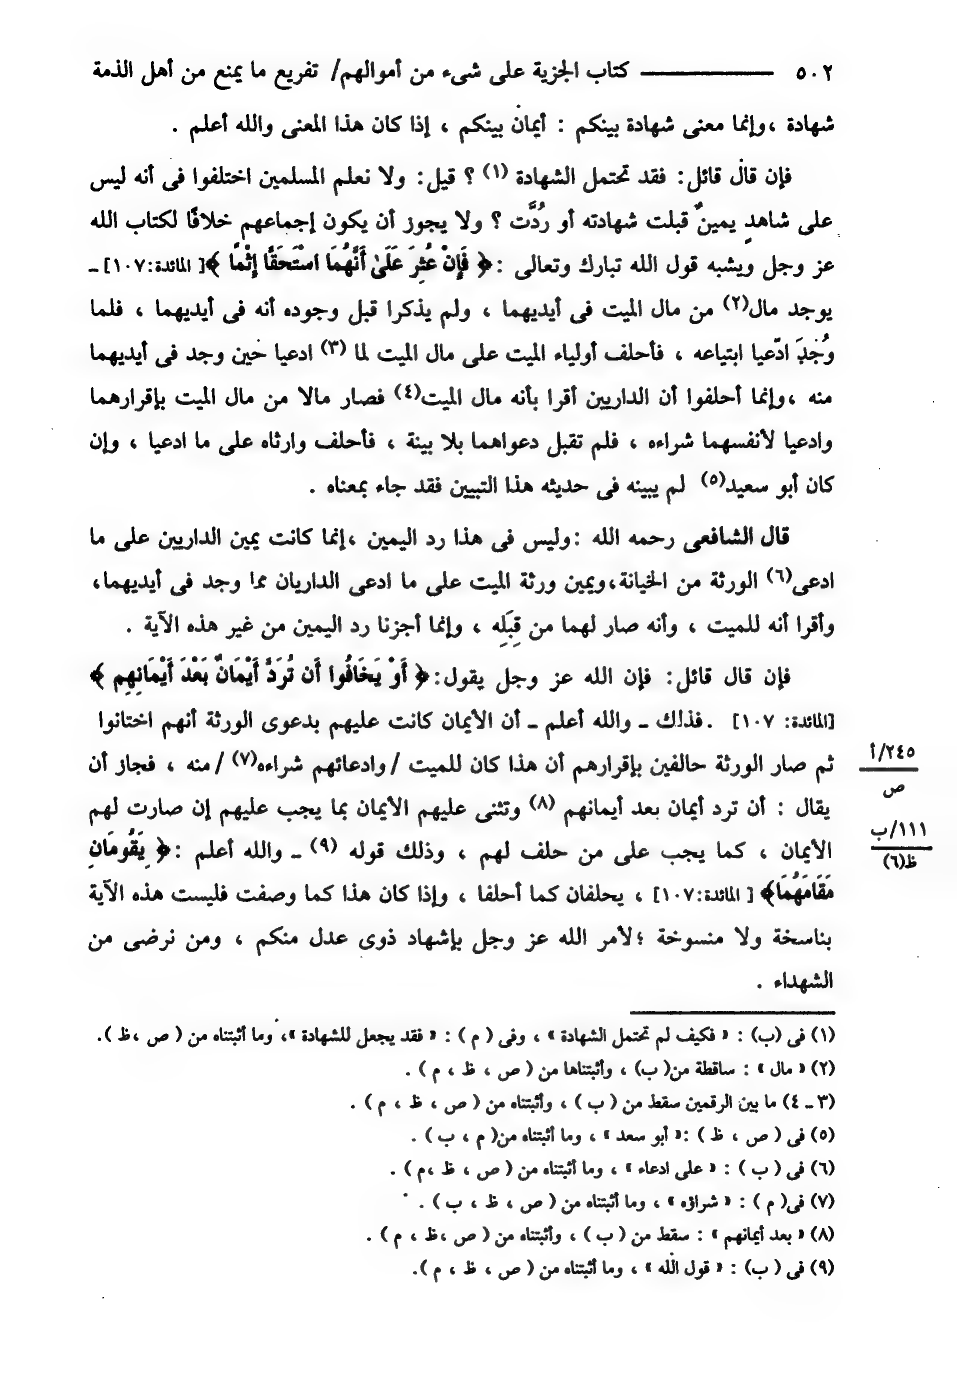 ٥٠٢ ــــــــــ كتاب الجزية على شىء من أموالهم/ تفريع ما يمنع من أهل الذمة
شهادة ،وإنما معنى شهادة بينكم : أيمان بينكم ، إذا كان هذا المعنى والله أعلم .
فإن قال قائل: فقد تحتمل الشهادة (١) ؟ قيل: ولا نعلم المسلمين اختلفوا فى أنه ليس
على شاهدٍ يمينٌ قبلت شهادته أو رُدَّت ؟ ولا يجوز أن يكون إجماعهم خلافًا لكتاب الله
عز وجل ويشبه قول الله تبارك وتعالى :﴿ فَإِنْ عُثِرَ عَلَىٰ أَنَّهُمَا اسْتَحَقَّا إِثْمًا ﴾[ المائدة:١٠٧] ـ
يوجد مال(٢) من مال الميت فى أيديهما ، ولم يذكرا قبل وجوده أنه فى أيديهما ، فلما
وُجدَ ادّعيا ابتياعه ، فأحلف أولياء الميت على مال الميت لما (٣) ادعيا حين وجد فى أيديهما
منه ،وإنما أحلفوا أن الداريين أقرا بأنه مال الميت(٤) فصار مالا من مال الميت بإقرارهما
وادعيا لأنفسهما شراءه ، فلم تقبل دعواهما بلا بينة ، فأحلف وارثاه على ما ادعيا ، وإن
كان أبو سعيد(٥) لم يبينه فى حديثه هذا التبيين فقد جاء بمعناه .
قال الشافعى رحمه الله :وليس فى هذا رد اليمين ،إنما كانت يمين الداريين على ما
ادعى(٦) الورثة من الخيانة،ويمين ورثة الميت على ما ادعى الداريان مما وجد فى أيديهما،
وأقرا أنه للميت ، وأنه صار لهما من قِبَلِه ، وإنما أجزنا رد اليمين من غير هذه الآية .
فإن قال قائل: فإن الله عز وجل يقول:﴿ أَوْ يَخَافُوا أَن تُرَدَّ أَيْمَانٌ بَعْدَ أَيْمَانِهِم ﴾
[المائدة: ١٠٧] .فذلك ـ والله أعلم ـ أن الأيمان كانت عليهم بدعوى الورثة أنهم اختانوا
ثم صار الورثة حالفين بإقرارهم أن هذا كان للميت /وادعائهم شراءه(٧) /منه ، فجاز أن
٢٤٥/أ
ص
يقال : أن ترد أيمان بعد أيمانهم (٨) وتثنى عليهم الأيمان بما يجب عليهم إن صارت لهم
١١١/ب
ظ(٦)
الأيمان ، كما يجب على من حلف لهم ، وذلك قوله (٩) ـ والله أعلم :﴿ يَقُومَانِ
مَقَامَهُمَا﴾ [ المائدة:١٠٧] ، يحلفان كما أحلفا ، وإذا كان هذا كما وصفت فليست هذه الآية
بناسخة ولا منسوخة ؛لأمر الله عز وجل بإشهاد ذوى عدل منكم ، ومن نرضى من
الشهداء .
(١) فى (ب) : « فكيف لم تحتمل الشهادة » ، وفى ( م ) : « فقد يجعل للشهادة »، وما أثبتناه من ( ص ،ظ ).
(٢) « مال » : ساقطة من( ب) ، وأثبتناها من ( ص ، ظ ، م ) .
(٣ ـ ٤) ما بين الرقمين سقط من ( ب ) ، وأثبتناه من ( ص ، ظ ، م ) .
(٥) فى ( ص ، ظ ) :« أبو سعد » ، وما أثبتناه من( م ، ب ) .
(٦) فى ( ب ) : « على ادعاء » ، وما أثبتناه من ( ص ، ظ ،م ) .
(٧) فى( م ) : « شراؤه » ، وما أثبتناه من ( ص ، ظ ، ب ) .
(٨) « بعد أيمانهم » : سقط من ( ب ) ، وأثبتناه من ( ص ،ظ ، م ) .
(٩) فى ( ب) : « قول الله » ، وما أثبتناه من ( ص ، ظ ، م ).